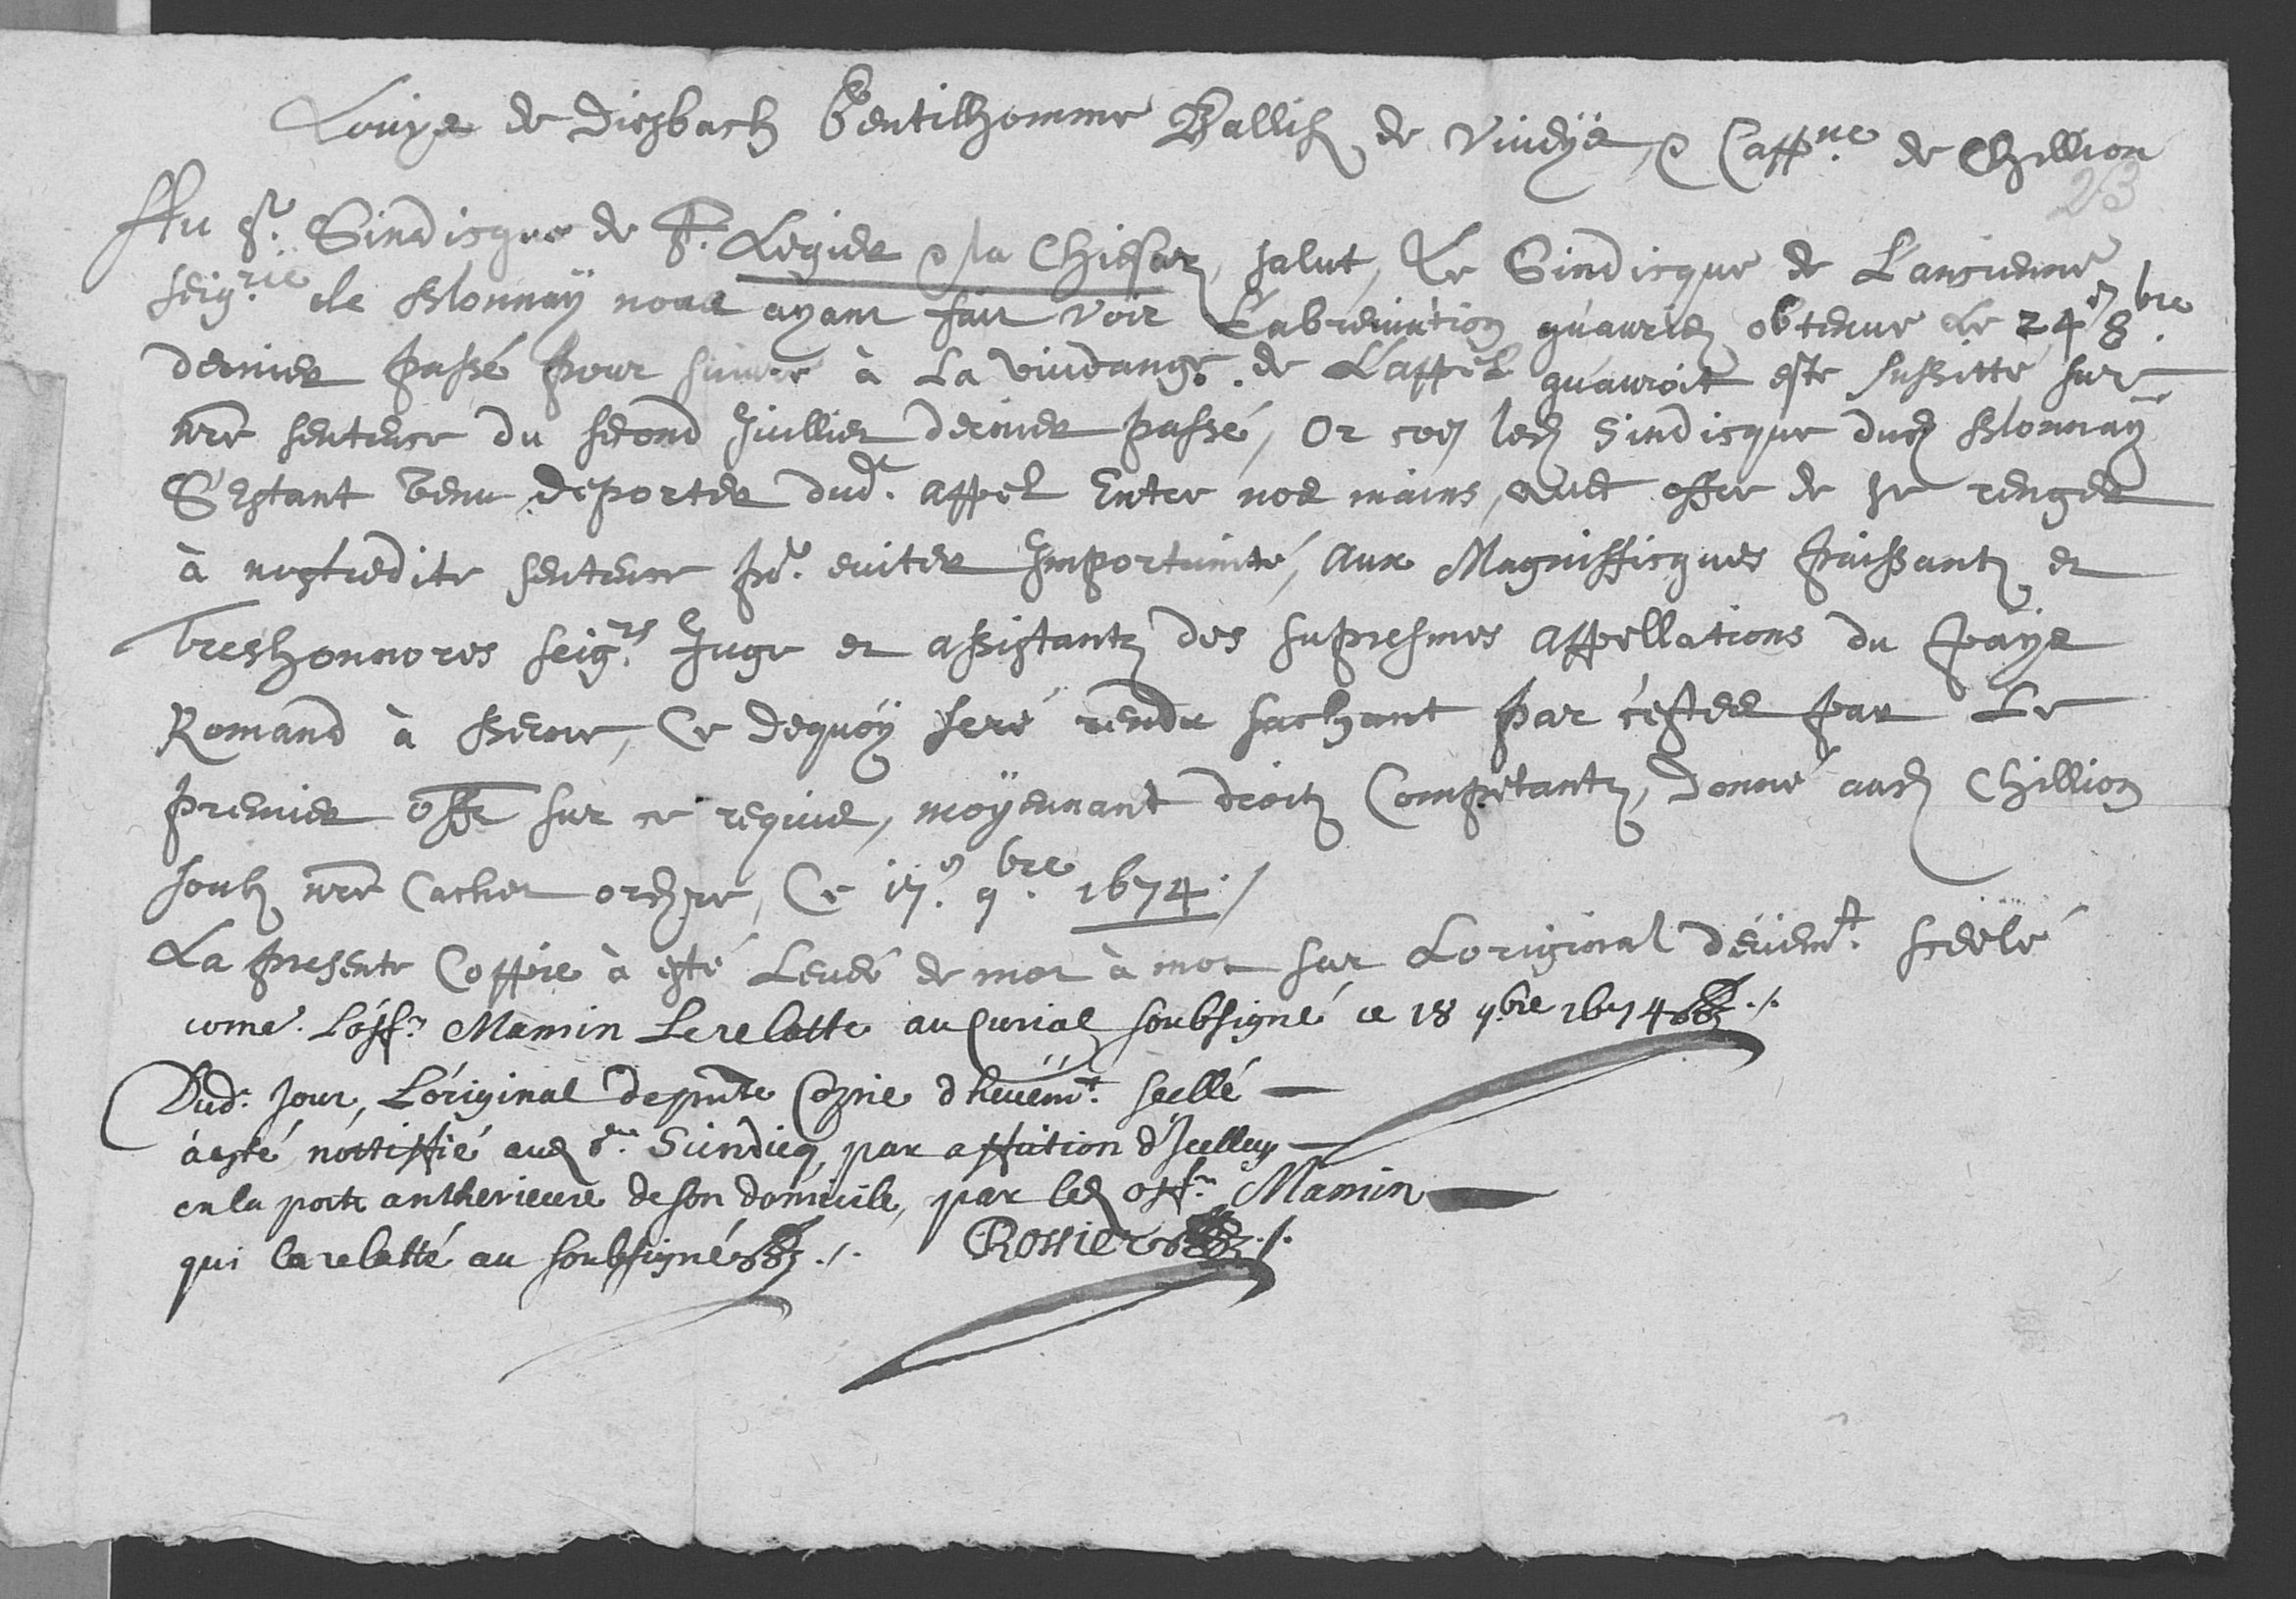 Louys de Diesbach Gentilhomme Ballif de Viveÿs, & Capp.ne de Chillion
23
Au Sr. Sindicque de St. Legier & la Chiesaz, salut, Le Sindicque de L'ancienne
seig.rie de Blonnaÿ nous ayant fait voir L'abreviation qu'auriez obtenue le 24e 8.bre
dernier passé pour suivre à la vuidange de L'appel qu'auroit esté sussitté sur
nre sentence du second Juillier dernier passé, Or com led Sindicque dud Blonnaÿ
S'estant venu deporter dud. appel Entre nos mains, avec offre de se renger
à nostredite sentence pr. eviter Importunité, aux Magnifficques puissantz et
treshonnorés seig.rs Juge et assistantz des supresmes appellations du paÿs
Romand à Berne, Ce dequoÿ seré rendu sachant par cestes par le
premier offr sur ce requis, moÿennant droitz Competantz, Donné aud Chillion
soubz nre Cachet ordre, Ce 17e. 9.bre 1674./
La presente Coppie à esté Levée de mot à mot sur L'original deüem.t sceelé
come. L'off.r Mamin Le relatte au Curial soubsigné ce 18 9.bre 1674 ./.
Dud. Jour, L'original de pnte Copie dheuem.t seellé
à esté nottiffié aud Sr. Sindicq par affiction d'Icelluy
en la porte antherieure de son domicile, par led off.r Mamin
qui la relatté au soubsigné ./. Rossier ./.